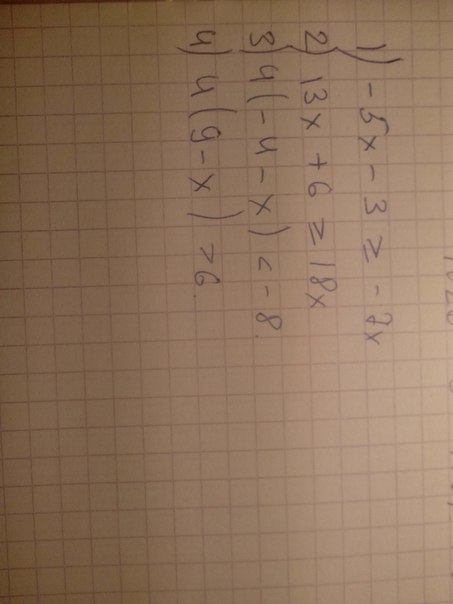 1) -5x - 3 ≥ -7x
2) 13x + 6 ≥ 18x
3) 4(-4 - x) < -8.
4) 4(9 - x) > 6.